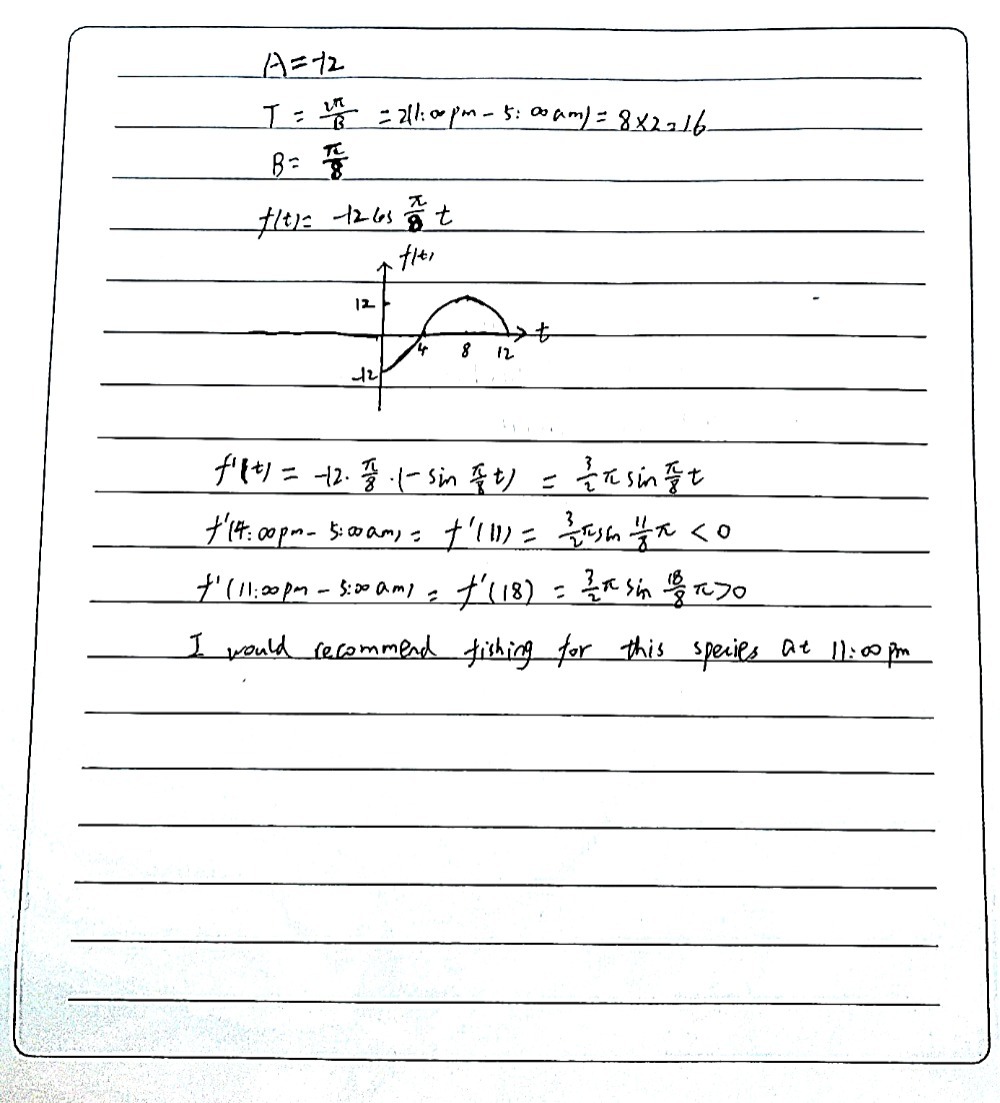 A=-12
T = 2π/B = 2(1:00pm - 5:00am) = 8×2=16
B= π/8
f(t)= -12cos π/8 t
f(t)
12
t
4 8 12
-12
f'(t) = -12· π/8 ·(-sin π/8 t) = 3/2 π sin π/8 t
f'(4:00pm - 5:00am) = f'(11) = 3/2 π sin 11/8 π < 0
f'(11:00pm - 5:00am) = f'(18) = 3/2 π sin 18/8 π >0
I would recommend fishing for this species at 11:00pm